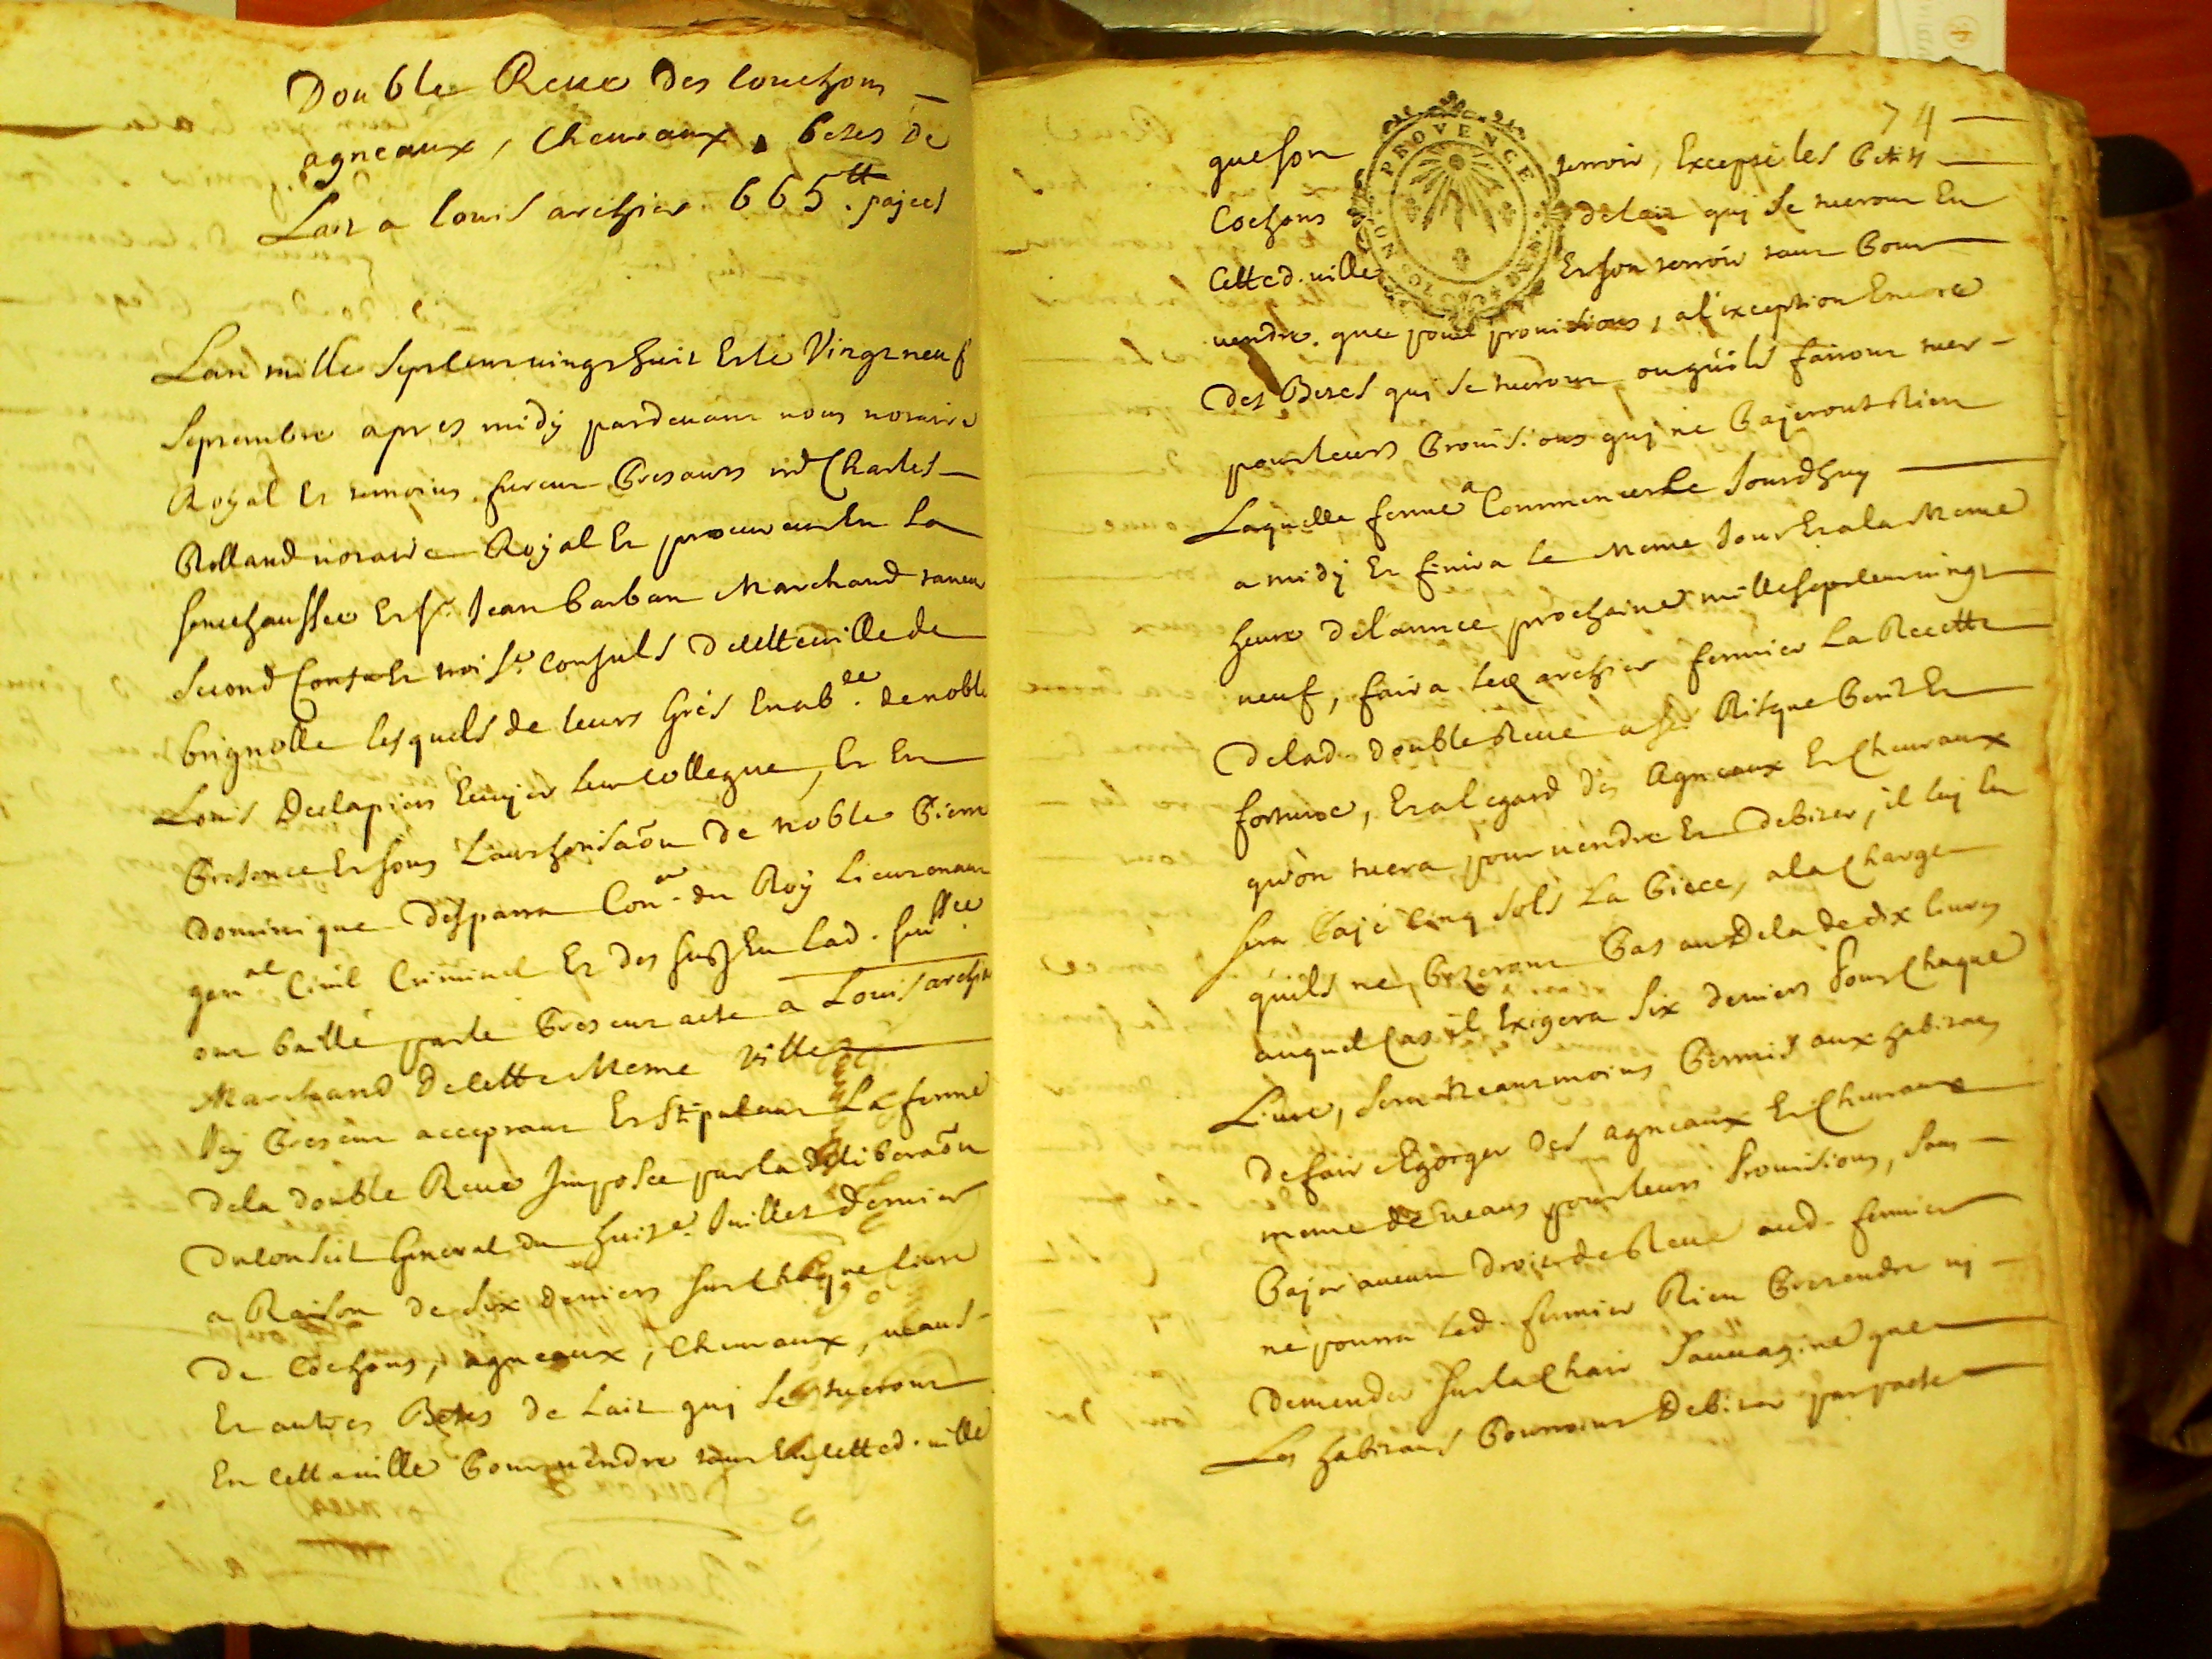 Double Reve des couchons
agneaux, chevraux, betes de
Lait a louis archier. 665.tt payees
Lan mille septcent vingt huit Et le Vingt neuf
Septembre apres midy pardevant nous notaire
Royal Et temoins furent Presants Charles
Rolland notaire Royal Et procureur En la
senechaussee Et sr. Jean barban Marchand taneur
second Et troise. consuls de cette ville de
brignolle lesquels de leurs Grés Enabce. de noble
Louis Declapiers Ecuyer leur collegue, Et En
Presence Et sous Lauthorisaõn de noble Pierre
Dominique Desparra Coner. du Roy Lieutenant
genal. Civil Criminel Et des En lad. senssee.
ont baillé par le Present acte a Louis archier
Marchand de cette Meme Ville
Icy Present acceptant Et Stipulant La ferme
de la double Reve Imposée par la deliberaõn
du conseil General du huite. Juillet dernier
a Raison de six deniers sur chaque livre
de cochons, agneaux, chevraux, veaus
Et autres Betes de Lait qui se tueront
En cette ville Pour vendre tant En cette d. ville
74
PROVENCE
que son terroir, Excepté les Petits
Cochons de lait qui se tueront En
Cette d. ville Et son terroir tant Pour
vendre que pour provisions, a l'exception Encore
des Betes qui se tueront ou qu'ils fairont tuer
pour leurs Provisions qui ne Payeront Rien
Laquelle ferme a Commencer Le Jourdhuy
a midy Et finira le Meme Jour Et a la Meme
heure de lannee prochaine mille septcent vingt
neuf, faira led archier fermier La Recette
de lad. double Reve a ses Risque Peril Et
fortune, Et a legard des Agneaux Et Chevraux
qu'on tuera pour vendre Et debiter, il luy en
sera Payé cinq sols La Piece, a la Charge
quils ne Pezeront Pas au dela de dix livres
auquel Cas il Exigera six deniers Pour Chaque
Livre, sera neaumoins Permis aux habitans
de faire Egorger des agneaux Et Chevraux
meme de veaus pour leurs Provisions, sans
Payer aucun droit de Reve aud. fermier
ne pourra led. fermier Rien Pretendre ny
demender sur la Chair Sauvagine que
Les habitans Pourroint Debiter par pacte